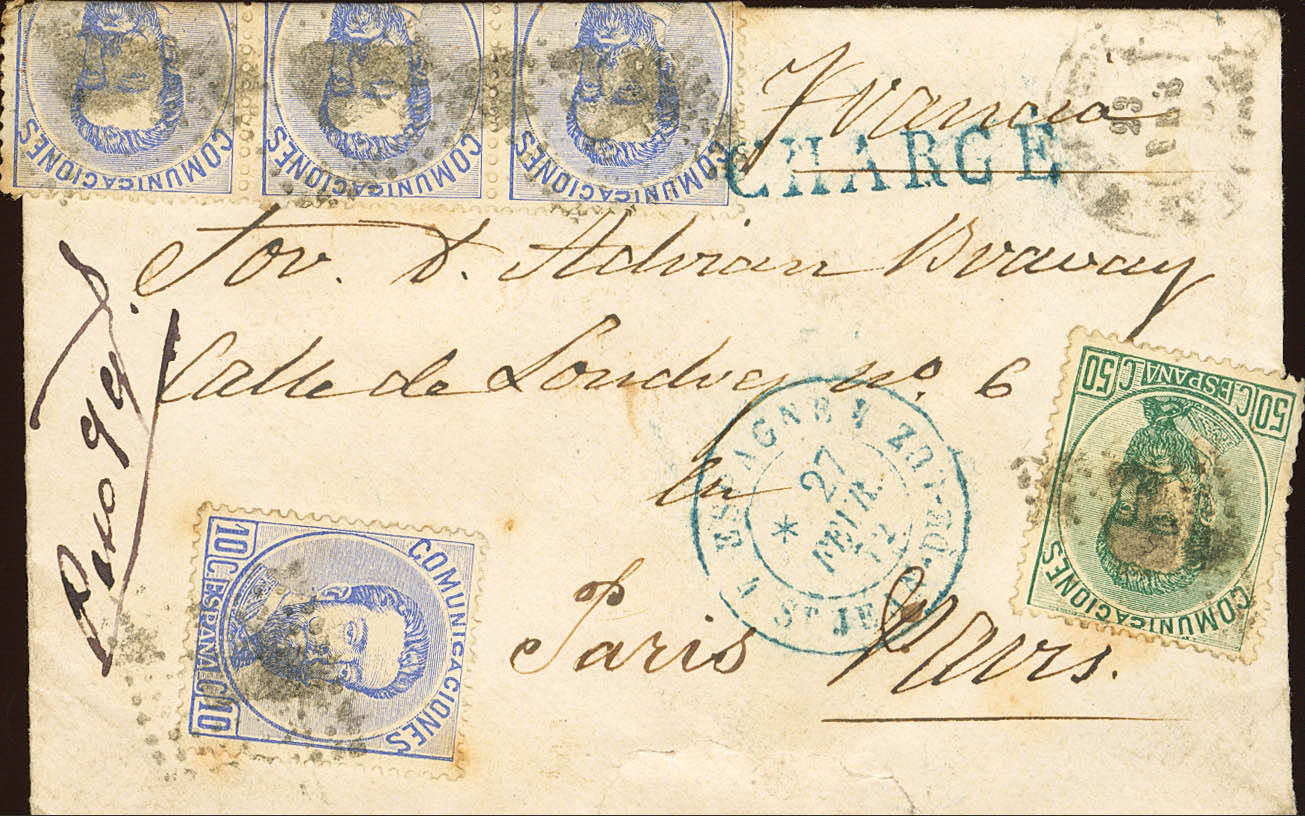 COMUNICACIONES
COMUNICACIONES
COMUNICACIONES
Francia
CHARGÉ
23
Sor. D. Adrian Bravay
Calle de Londres no. 6
en
Paris
ESPAGNE
27
FEVR.
72
ST JE
10 C. ESPANA C. 10
COMUNICACIONES
50 C. ESPANA C. 50
COMUNICACIONES